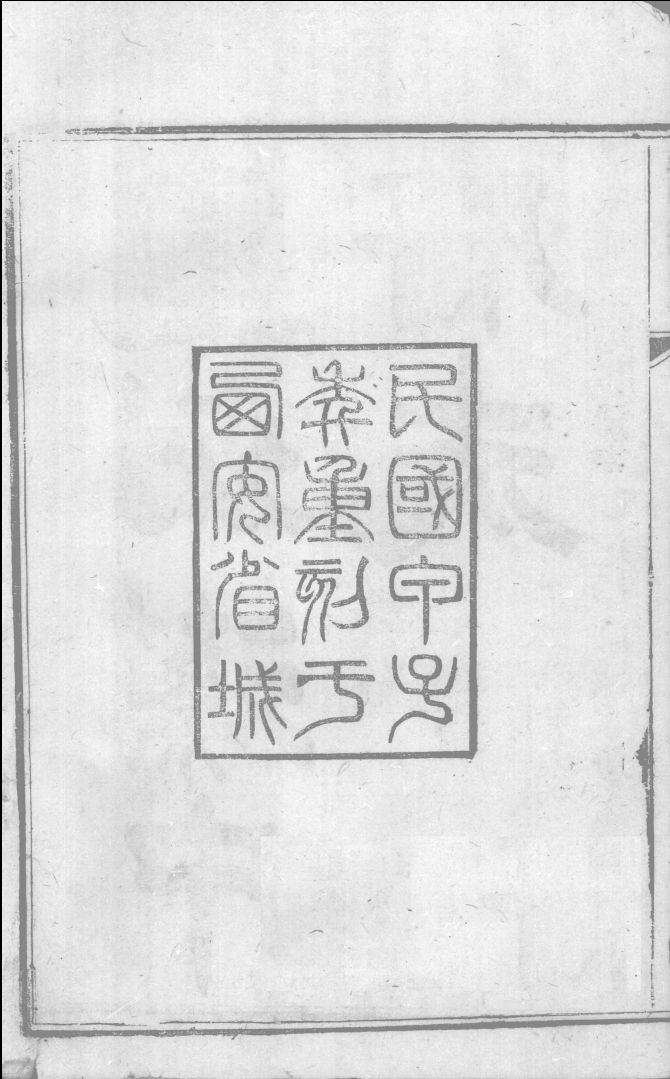 民國甲子
重刻于
西安省城